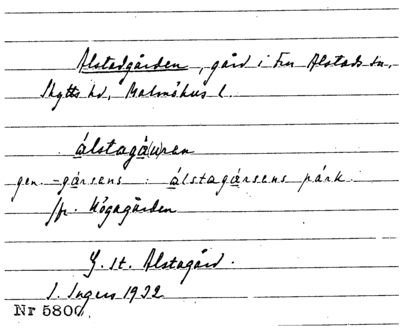 Alstadgården, gård i Fru Alstads sn,
Skytts hd, Malmöhus l.
álstagá(u)ren
gen. -gársens : álstagársens párk.
Jfr. Högagården
G. st. Alstagård.
I. Ingers 1932
Nr 5800.